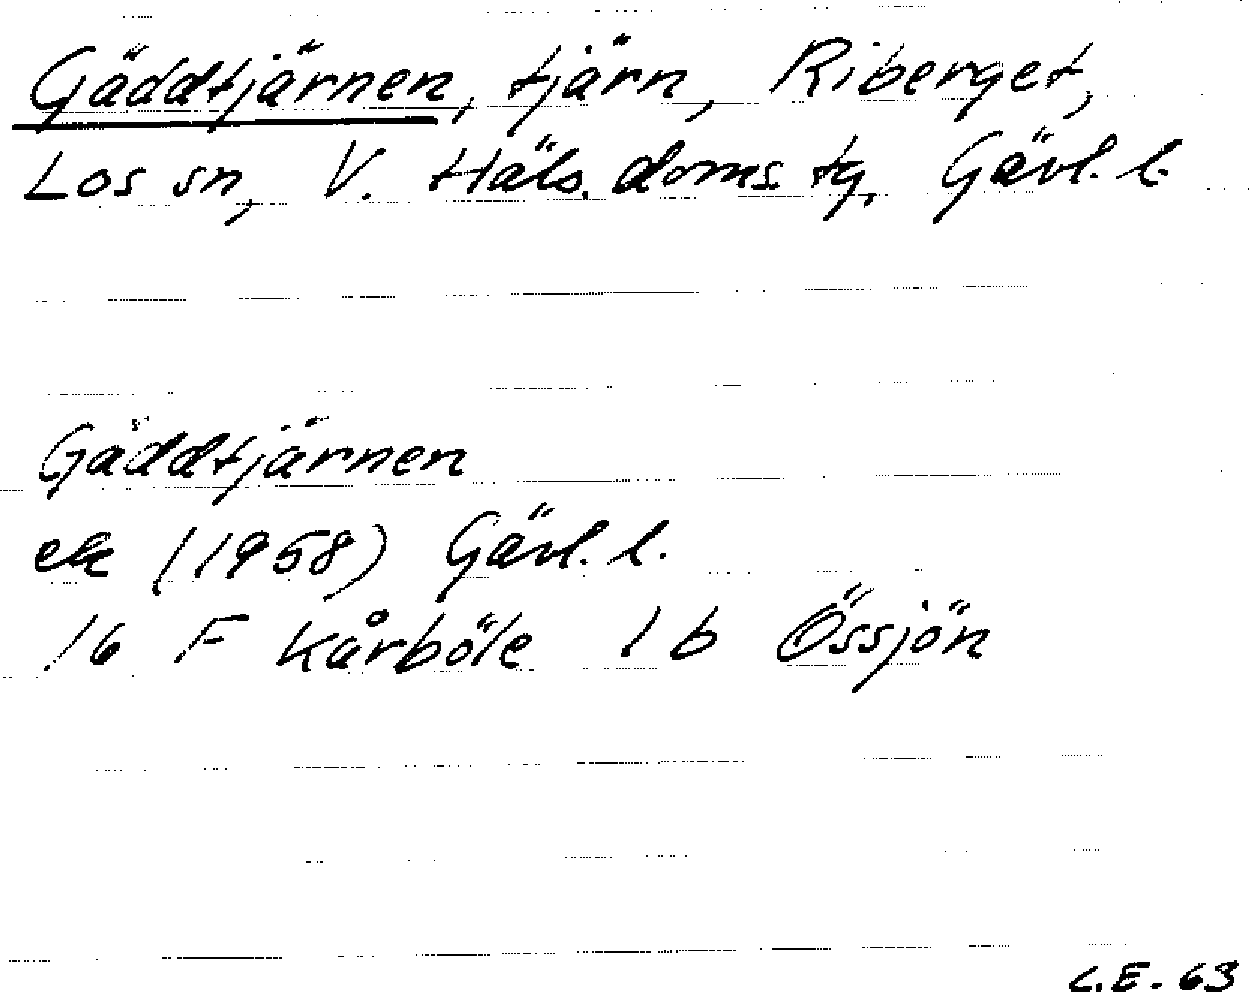 Gäddtjärnen, tjärn, Riberget,
Los sn, V. Häls. doms. tg, Gävl. l.
Gäddtjärnen
ek (1958) Gävl. l.
16 F Kårböle 1 b Össjön
C.E. - 63